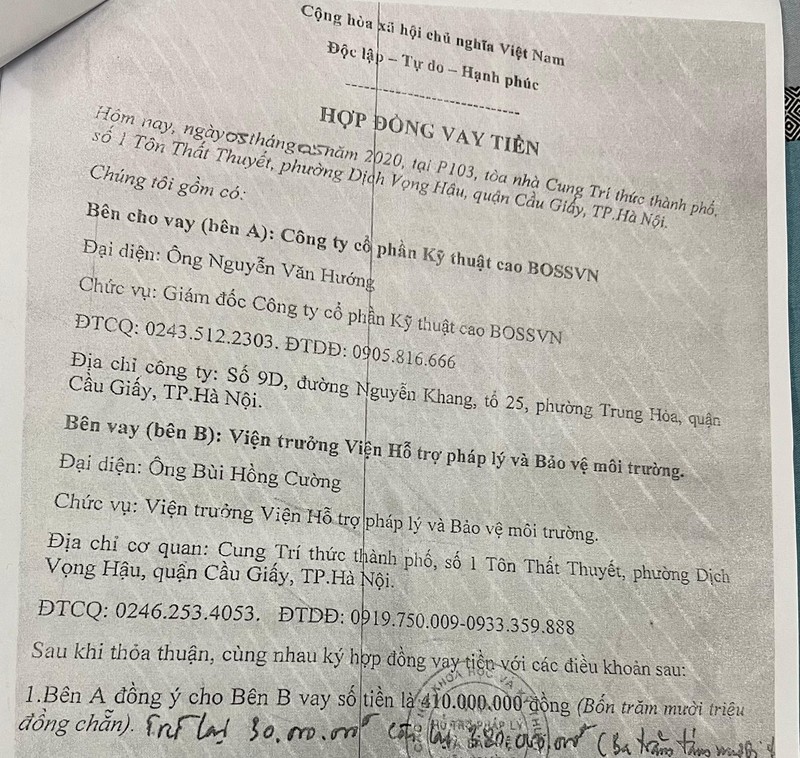 Cộng hòa xã hội chủ nghĩa Việt Nam
Độc lập – Tự do – Hạnh phúc
HỢP ĐỒNG VAY TIỀN
Hôm nay, ngày 05 tháng 05 năm 2020, tại P103, tòa nhà Cung Trí thức thành phố,
số 1 Tôn Thất Thuyết, phường Dịch Vọng Hậu, quận Cầu Giấy, TP.Hà Nội.
Chúng tôi gồm có:
Bên cho vay (bên A): Công ty cổ phần Kỹ thuật cao BOSSVN
Đại diện: Ông Nguyễn Văn Hướng
Chức vụ: Giám đốc Công ty cổ phần Kỹ thuật cao BOSSVN
ĐTCQ: 0243.512.2303. ĐTDĐ: 0905.816.666
Địa chỉ công ty: Số 9D, đường Nguyễn Khang, tổ 25, phường Trung Hòa, quận
Cầu Giấy, TP.Hà Nội.
Bên vay (bên B): Viện trưởng Viện Hỗ trợ pháp lý và Bảo vệ môi trường.
Đại diện: Ông Bùi Hồng Cường
Chức vụ: Viện trưởng Viện Hỗ trợ pháp lý và Bảo vệ môi trường.
Địa chỉ cơ quan: Cung Trí thức thành phố, số 1 Tôn Thất Thuyết, phường Dịch
Vọng Hậu, quận Cầu Giấy, TP.Hà Nội.
ĐTCQ: 0246.253.4053. ĐTDĐ: 0919.750.009-0933.359.888
Sau khi thỏa thuận, cùng nhau ký hợp đồng vay tiền với các điều khoản sau:
1.Bên A đồng ý cho Bên B vay số tiền là 410.000.000 đồng (Bốn trăm mười triệu
đồng chẵn). Trả lại 30.000.000đ còn lại 380.000.000đ (Ba trăm tám mươi